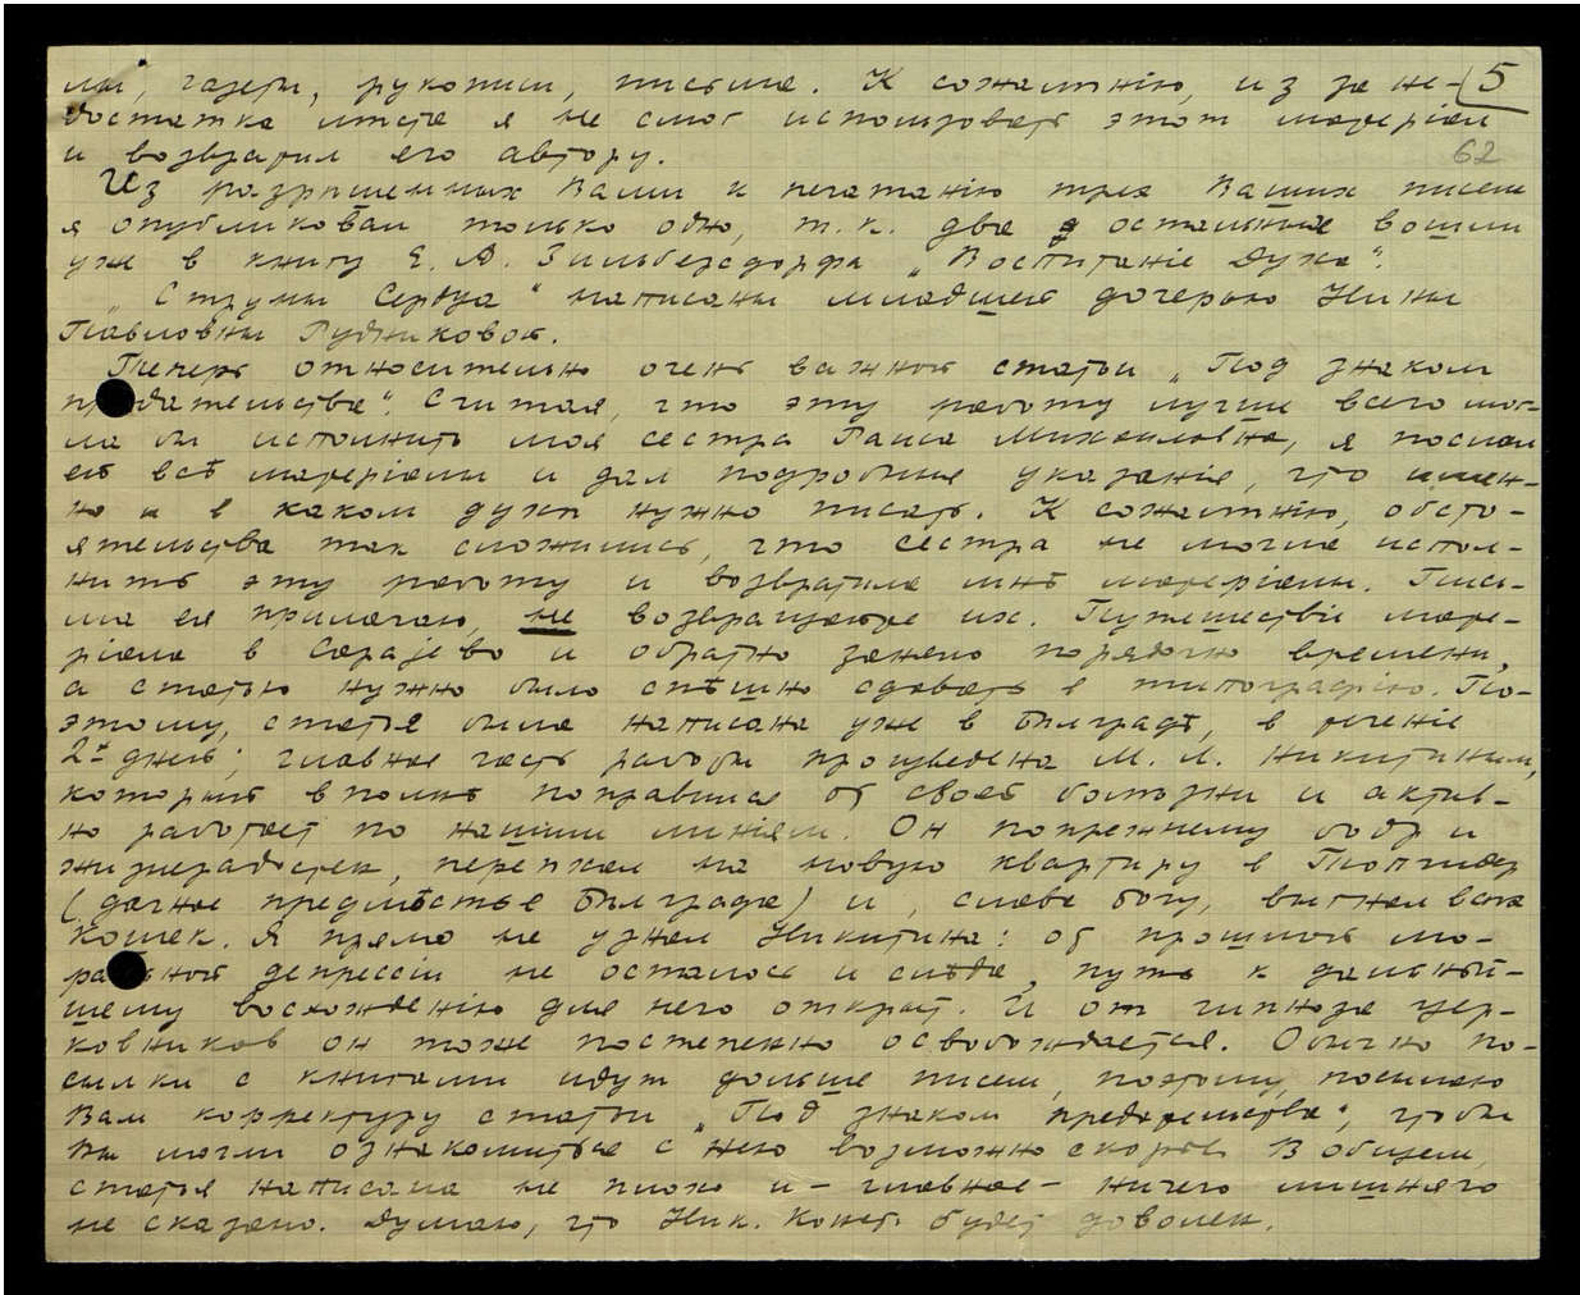 мы, газеты, рукописи, письма. К сожалѣнію, из за не- 5
достатка мѣста я не смог использовать этот матеріал
и возвратил его автору. 62
Из разрѣшенных Вами к печатанію трех Ваших писем
я опубликовал только одно, т.к. два остальные вошли
уже в книгу Е. А. Зильберсдорфа „Воспитаніе Духа“.
„Струны Сердца“ написаны младшей дочерью Нины
Павловны Рудниковой.
Теперь относительно очень важной статьи „Под знаком
дательства“. Считая, что эту работу лучше всего мог-
ла бы исполнить моя сестра Раиса Михайловна, я послал
ей всѣ матеріалы и дал подробныя указанія, что имен-
но и в каком духѣ нужно писать. К сожалѣнію, обсто-
ятельства так сложились, что сестра не могла испол-
нить эту работу и возвратила мнѣ матеріалы. Пись-
ма ея прилагаю, не возвращайте их. Путешествіе мате-
ріала в Сараjево и обратно заняло порядочно времени,
а статью нужно было спѣшно сдавать в типографію. По-
этому, статья была написана уже в Бѣлградѣ, в теченіе
2х дней; главная часть работы произведена М. Л. Никитиным,
который вполнѣ поправился от своей болѣзни и актив-
но работает по нашим линіям. Он попрежнему бодр и
жизнерадостен, переѣхал на новую квартиру в Топчидер
(дачное предмѣстье Бѣлграда) и, слава Богу, выгнал всѣх
кошек. Я прямо не узнал Никитина: от прошлой мо-
ральной депрессіи не осталось и слѣда, путь к дальнѣй-
шему восхожденію для него открыт. И от гипноза цер-
ковников он тоже постепенно освобождается. Обычно по-
сылки с книгами идут дольше писем, поэтому, посылаю
Вам корректуру статьи „Под знаком предательства“, чтобы
Вы могли ознакомиться с нею возможно скорѣе. В общем,
статья написана не плохо и – главное – ничего лишняго
не сказано. Думаю, что Ник. Конст. будет доволен.